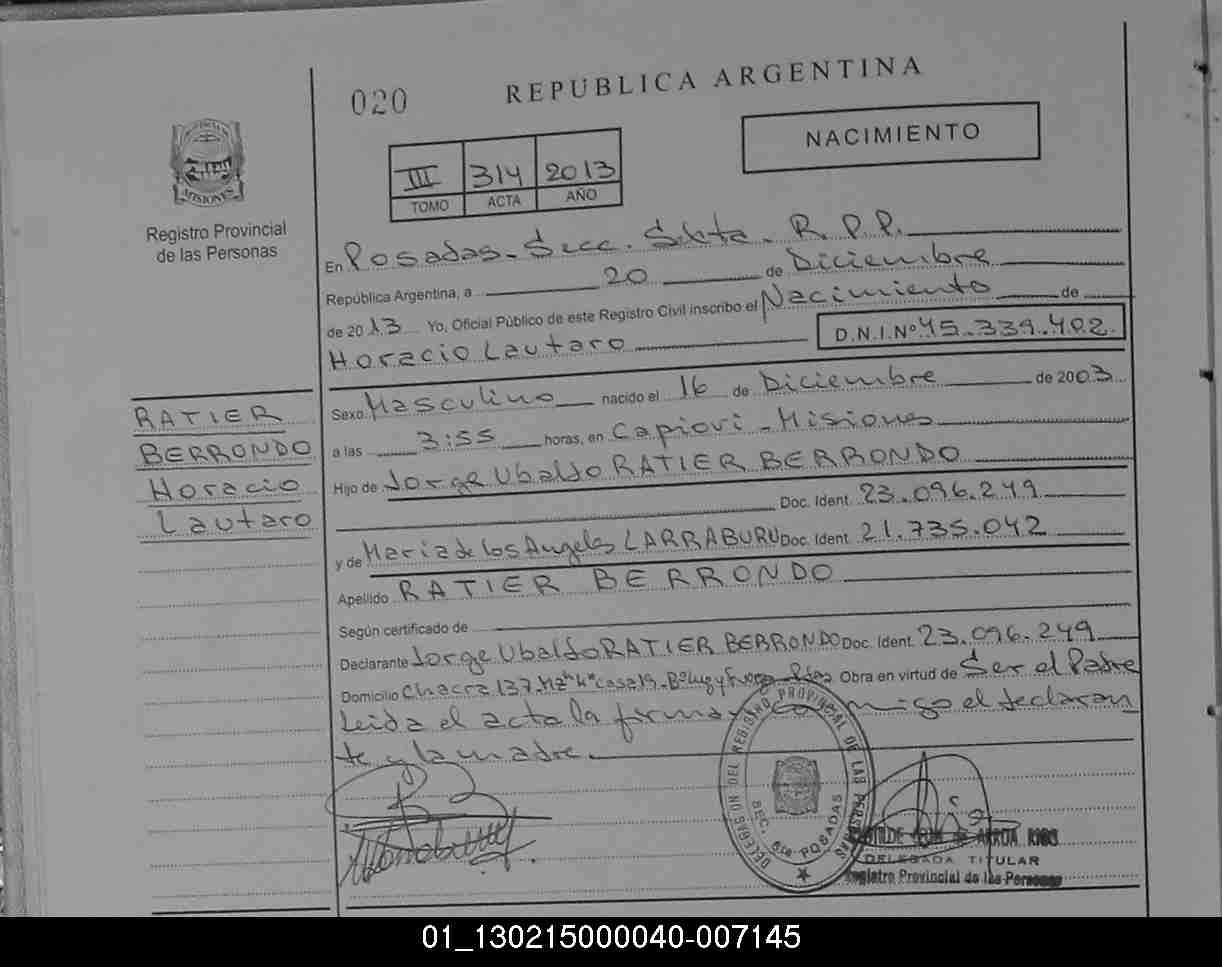 020 REPÚBLICA ARGENTINA
NACIMIENTO
III 314 2013
TOMO ACTA AÑO
PROVINCIA DE
MISIONES
Registro Provincial
de las Personas
En Posadas - Secc. Sexta - R.P.P.
República Argentina, a 20 de Diciembre
de 2013 Yo, Oficial Público de este Registro Civil inscribo el Nacimiento de
Horacio Lautaro D.N.I.Nº 45.339.402
RATIER
BERRONDO
Horacio
Lautaro
Sexo Masculino nacido el 16 de Diciembre de 2003
a las 3:55 horas, en Capiovi - Misiones
Hijo de Jorge Ubaldo RATIER BERRONDO
Doc. Ident. 23.096.249
y de Maria de los Angeles LARRABURU Doc. Ident. 21.735.042
Apellido RATIER BERRONDO
Según certificado de
Declarante Jorge Ubaldo RATIER BERRONDO Doc. Ident. 23.096.249
Domicilio Chacra 137 Mz "K" Casa 19 - Bº Luz y Fuerza - Pdas Obra en virtud de Ser el Padre
Leida el acta la firman conmigo el declaran
te y la madre.
DELEGACION DEL REGISTRO PROVINCIAL DE LAS PERSONAS
SEC. 6ta POSADAS
DELEGADA TITULAR
Registro Provincial de las Personas
01_130215000040-007145